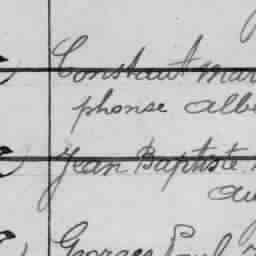 Constant Mar
phonse Albe
Jean Baptiste
au
Georges Paul